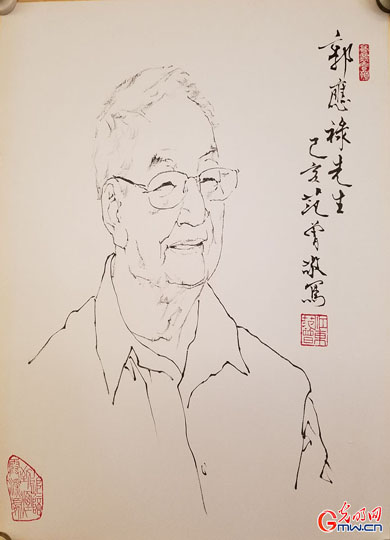 郭應祿先生
己亥范曾敬寫
光明网
GMW.cn